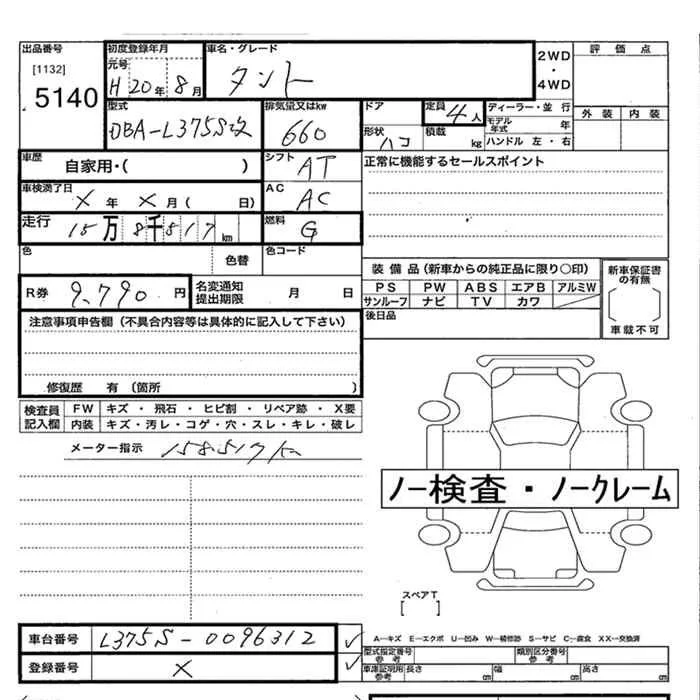 出品番号
[1132]
5140
初度登録年月
元号
H 20年 8月
車名・グレード
タント
2WD
・
4WD
評価点
外装 内装
型式
DBA-L375S改
排気量又はkw
660
ドア
形状
ハコ
定員
4人
積載 kg
ディーラー・並行
モデル年式 年
ハンドル 左・右
車歴
自家用・( )
シフト
AT
正常に機能するセールスポイント
車検満了日
X 年 X 月( 日)
AC
AC
走行
15万8千517km
燃料
G
色
色替
色コード
R券 9,790 円
名変通知
提出期限 月 日
装備品(新車からの純正品に限り○印)
PS PW ABS エアB アルミW
サンルーフ ナビ TV カワ
後日品
新車保証書
の有無
車載不可
注意事項申告欄(不具合内容等は具体的に記入して下さい)
修復歴 有(箇所 )
検査員
記入欄
FW キズ・飛石・ヒビ割・リペア跡・X要
内装 キズ・汚レ・コゲ・穴・スレ・キレ・破レ
メーター指示 158517K
ノー検査・ノークレーム
スペアT
[ ]
車台番号 L375S-0096312 ✓
登録番号 X ✓
A―キズ E―エクボ U―凹み W―補修跡 S―サビ C―腐食 XX―交換済
型式指定番号
参考
類別区分番号
参考
車庫証明用
参考
長さ cm 幅 cm 高さ cm